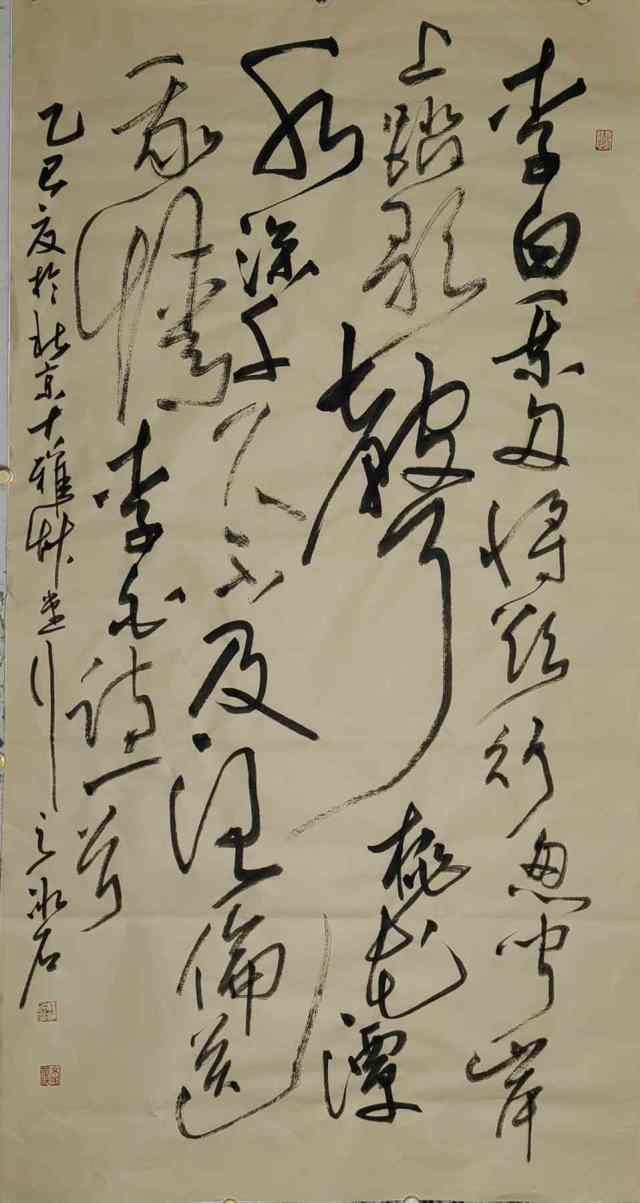 李白乘舟将欲行忽闻岸
上踏歌聲桃花潭
水深千尺不及汪倫送
我情李白诗一首
乙巳夏於北京十雅艸堂冰石